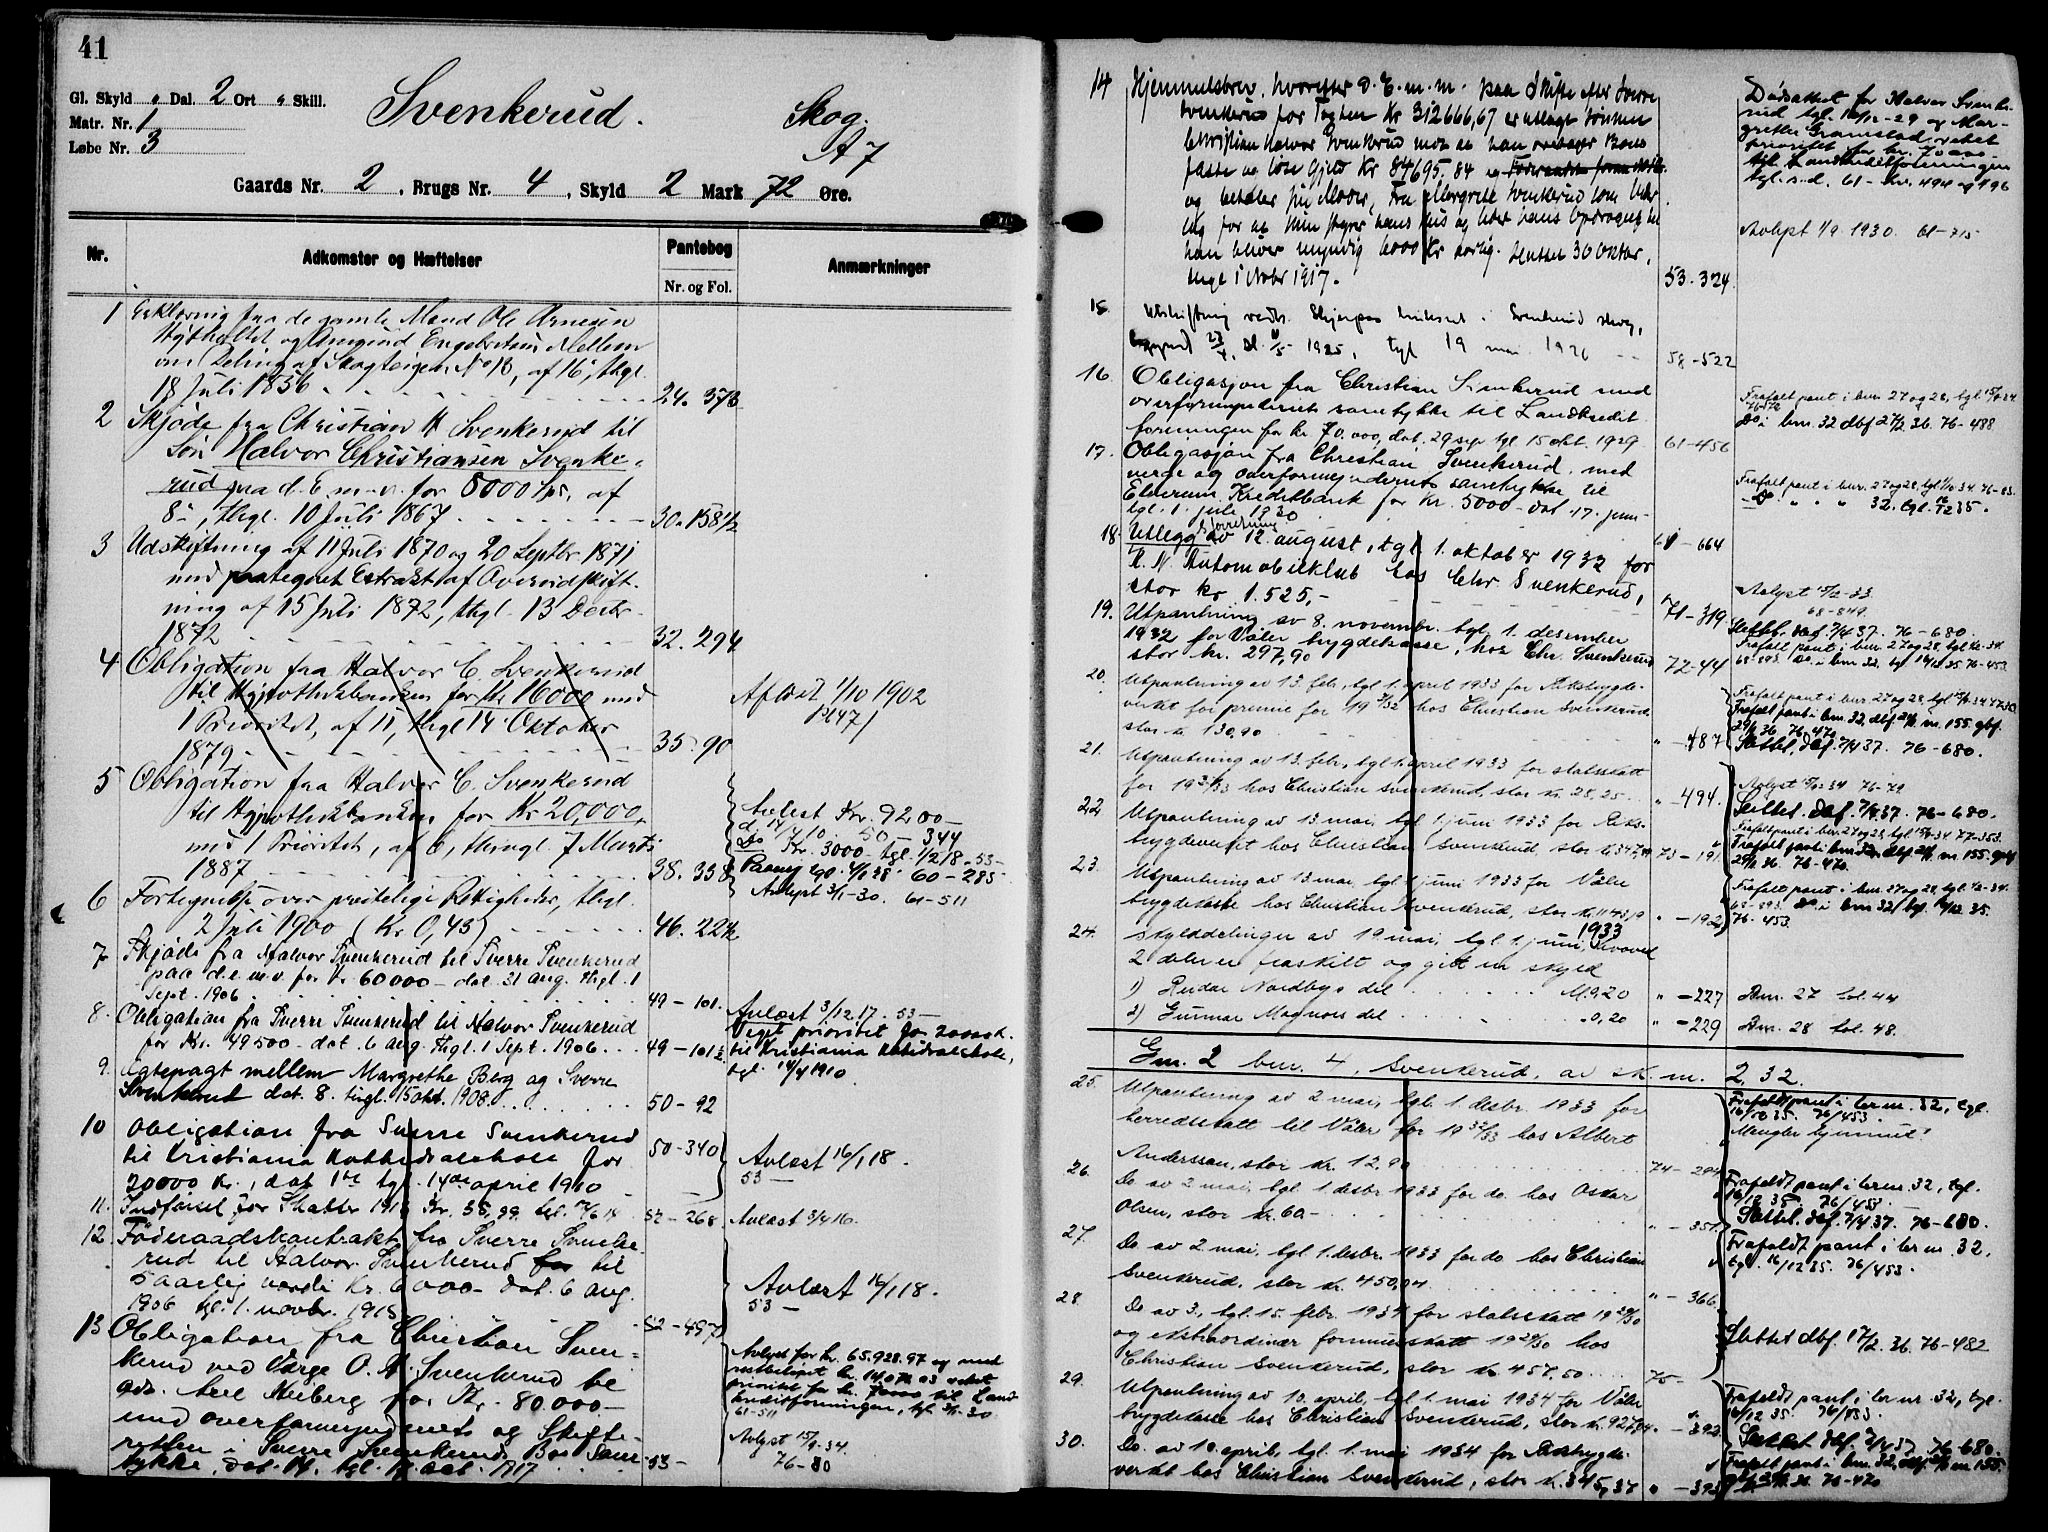 41
Gl. Skyld " Dal. 2 Ort " Skill.
Matr. Nr. 1
Løbe Nr. 3
Svenkerud. Skog.
A 7
Gaards Nr. 2, Brugs Nr. 4, Skyld 2 Mark 72 Øre.
Nr. Adkomster og Hæftelser Pantebog Nr. og Fol. Anmærkninger
1 Erklæring fra de gamle Mænd Ole Arnesen
og Amund Engebretsen Mellem
om Deling af Skogteigen No 18, af 16, thgl.
18 Juli 1856 24. 373
2 Skjøde fra Christian H Svenkerud til
Søn Halvor Christiansen Svenke-
rud paa d. E. m. v. for 8000 Spd, af
8de, thgl. 10 Juli 1867 30. 158 1/2
3 Udskiftning af 11 Juli 1870 og 20 Septbr. 1871
med paategnet Extrakt af Overudskift-
ning af 15 Juli 1872, thgl. 13 Decbr
1872 32. 294
4 Obligation fra Halvor C. Svenkerud
til Hypothekbanken for Kr 16000 med
1 Prioritet, af 11, thgl 14 Oktober
1879 35. 90
Aflæst 1/10 1902
5 Obligation fra Halvor C. Svenkerud
til Hypothekbanken for Kr 20,000,
med 1 Prioritet, af 6, thingl. 7 Marts
1887 38. 338
Avlæst Kr. 9200 -
d. 14/4 10. 50 - 344
Do Kr. 3000 - tgl. 1/2 18. 53 -
60 - 285
Avlyst 3/1-30. 61-511
6 Fortegnelse over prestelige Rettigheder, thgl.
2 Juli 1900 (Kr 0,45) 46. 22 1/2
7 Skjøde fra Halvor Svenkerud til Sverre Svenkerud
paa d.e.m.v. for Kr 60000 - dat. 31 aug. thgl. 1
Sept. 1906 49 - 101.
8. Obligation fra Sverre Svenkerud til Halvor Svenkerud
for Kr. 49500 - dat. 6 aug. thgl. 1 Sept. 1906 49 - 101 1/2
Avlæst 3/12 17. 53 -
Veget prioritet for 20000 k.
til Kristiania Kathedralskole,
tgl. 14/4 1910
9. Ægtepagt mellem Margrethe Berg og Sverre
Svenkerud dat. 8. tingl. 15 okt. 1908 50 - 92
10 Obligation fra Sverre Svenkerud
til Kristiania Kathedralskole for
20000 Kr., dat 1ste tgl. 14de april 1910
50-340
Avlæst 16/1 18.
53 -
11. Indførsel for Skatter Kr. 55,99 52 - 268 Avlæst 3/4 16.
12 Føderaadskontrakt fra Sverre Svenke-
rud til Halvor Svenkerud for til
5 aarlig værdi Kr. 6000 - dat. 6 aug.
1906 tgl. 1. novbr. 1915 52 - 497
Avlæst 16/1 18.
53 -
13 Obligation fra Christian Sven-
kerud ved Værge O. H. Svenkerud til
Axel Heiberg for Kr. 80.000 -
med overformynderiets og Skifte-
retten i Sverre Svenkeruds Bos Sam-
tykke, dat. 14. tgl. 17. Oct. 1917 53 -
Avlyst for kr. 65.928.97 og med
restbeløpet kr. 14.071.03 veket
prioritet for kr. 70000 til Land-
kreditforeningen, tgl. 3/1-30
61-511
Avlyst 15/9-34.
76-80
14 Hjemmelsbrev, hvorefter d. E. m. m. paa Skifte efter Sverre
Svenkerud for Taxten Kr 312666,67 er utlagt Sønnen
Christian Halvor Svenkerud mot at han overtager Boets
faste og løse Gjeld Kr 84695,84 og
og betaler sin Moder, Fru Margrethe Svenkerud som Veder-
lag for at hun styrer hans hus og leder hans Opdragelse til
han bliver myndig 6000 Kr aarlig. Sluttet 30 Oktbr,
thgl 1 Novbr 1917. 53. 324
Dødsattest for Halvor Svenke-
rud tgl. 16/12-29 og Mar-
grethe Gramstad veket
prioritet for kr. 70000
til Landkreditforeningen
tgl. s.d. 61 - Nr. 494 og 496
Avlyst 1/9 1930. 61-715
15 Utskiftning vedk. i Svenkerud skog,
begynt 23/4, sl. 8/5 1925, tgl 19 mai 1926 58-522
16. Obligasjon fra Christian Svenkerud med
overformynderiets samtykke til Landkredit-
foreningen for kr. 70.000, dat. 29 sep tgl. 15 okt. 1929 61-456
Frafalt pant i bnr. 27 og 28, tgl 15/9-34
76-72
Do i bnr. 32 dbf 27/2. 36. 76-488
17. Obligasjon fra Christian Svenkerud med
verge og overformynderiets samtykke til
Elverum Kreditbank for kr. 5000 - dat. 17. juni -
tgl. 1. juli 1930 61 - 664
Frafalt pant i bnr. 27 og 28, tgl 34. 76-83.
Do " " " 32. tgl. 16/12 35.
18. Utleggsforretning av 12. august, tgl 1. oktober 1932 for
K. N. Automobilklub hos Chr. Svenkerud,
stor kr. 1.525,- 71-319
Avlyst 15/2-33
68-849.
19. Utpantning av 8. november. tgl. 1. desember
1932 for Våler bygdekasse, hos Chr. Svenkerud
stor kr. 297,90 72-44
Slettet. dbf. 7/4 37. 76-680.
Frafalt pant i bnr. 27 og 28, tgl
68-893. Do i bnr 32. tgl 16/12 35 76-453
20. Utpantning av 13 febr, tgl 1. april 1933 for Riksbygde-
verket for premie for 1931/32 hos Christian Svenkerud.
stor kr 130,90 " - 487
Frafalt pant i bnr 27 og 28, tgl 15/9 34
Frafalt pant i bnr. 32, dbf 24/1. m. 155. gbf.
29/1 36. 76-470
Slettet. dbf. 7/4 37. 76-680.
21. Utpantning av 13. febr, tgl. 1. april 1933 for statsskatt
for 1932/33 hos Christian Svenkerud, stor kr. 28,25 " - 494.
Avlyst 15/9-34 76-79
Slettet. dbf. 7/4 37. 76-680.
22 Utpantning av 13. mai, tgl 1 juni 1933 for Riks-
bygdeverket hos Christian Svenkerud, stor kr. 347,94 73-191
Frafalt pant i bnr. 27 og 28, tgl 15/9-34 77-353.
Frafalt pant i bnr. 32 dbf 24/1. m. 155. gbf
29/1 36. 76-470
23. Utpantning av 13 mai, tgl 1 juni 1933 for Våler
bygdekasse hos Christian Svenkerud, stor kr. 1143,19 " - 192
Frafalt pant i bnr. 27 og 28, tgl.
68-893. Do i bnr 32, tgl. 16/12 35.
76-453.
24. Skylddelinger av 19. mai, tgl 1. juni 1933, hvorved
2 deler er fraskilt og gitt en skyld
1) Reidar Nordbys del M. 0,20 " - 227 Bnr. 27 bl. 44
2) Gunnar Magnors del " 0,20 " - 229 Bnr. 28 fol. 48.
Gnr. 2 bnr. 4, Svenkerud, av sk. m. 2,32.
25. Utpantning av 2 mai, tgl. 1. desbr. 1933 for
herredskatt til Våler for 1932/33 hos Albert
Anderssen, stor kr. 12,90 74-294
Frafaldt pant i br nr. 32, tgl.
16/12 35. 76/453.
Mangler hjemmel!
26. Do av 2 mai, tgl 1. desbr 1933 for do. hos Oskar
Olsen, stor kr. 60,- " - 351
Frafaldt pant i br nr. 32, tgl.
16/12 35 - 76/453 -
Slettet. dbf. 7/4 37. 76-680.
27. Do av 2 mai, tgl. 1. desbr. 1933 for do hos Christian
Svenkerud, stor kr. 450,04 " - 366
Frafaldt pant i br nr. 32,
tgl. 16/12 35. 76/453.
28. Do av 3, tgl. 15. febr. 1934 for statsskatt 1929/30
og ekstraordinær formuesskatt 1929/30 hos
Christian Svenkerud, stor kr. 457,50 75-
Slettet dbf. 17/2. 36. 76-482
29. Utpantning av 10. april, tgl 1. mai 1934 for Våler
bygdekasse hos Christian Svenkerud, stor kr. 927,94 " - 392
Frafaldt pant i br nr. 32, tgl.
16/12 35. 76/453.
Slettet dbf. 7/4 37. 76-680.
30. Do. av 10. april, tgl. 1. mai 1934 for Riksbygde-
verket hos Christian Svenkerud, stor kr. 345,37 " - 393
Frafalt pant i bnr. 32, dbf. 24/1 m. 155.
gbf 29/1. 36. 76-470